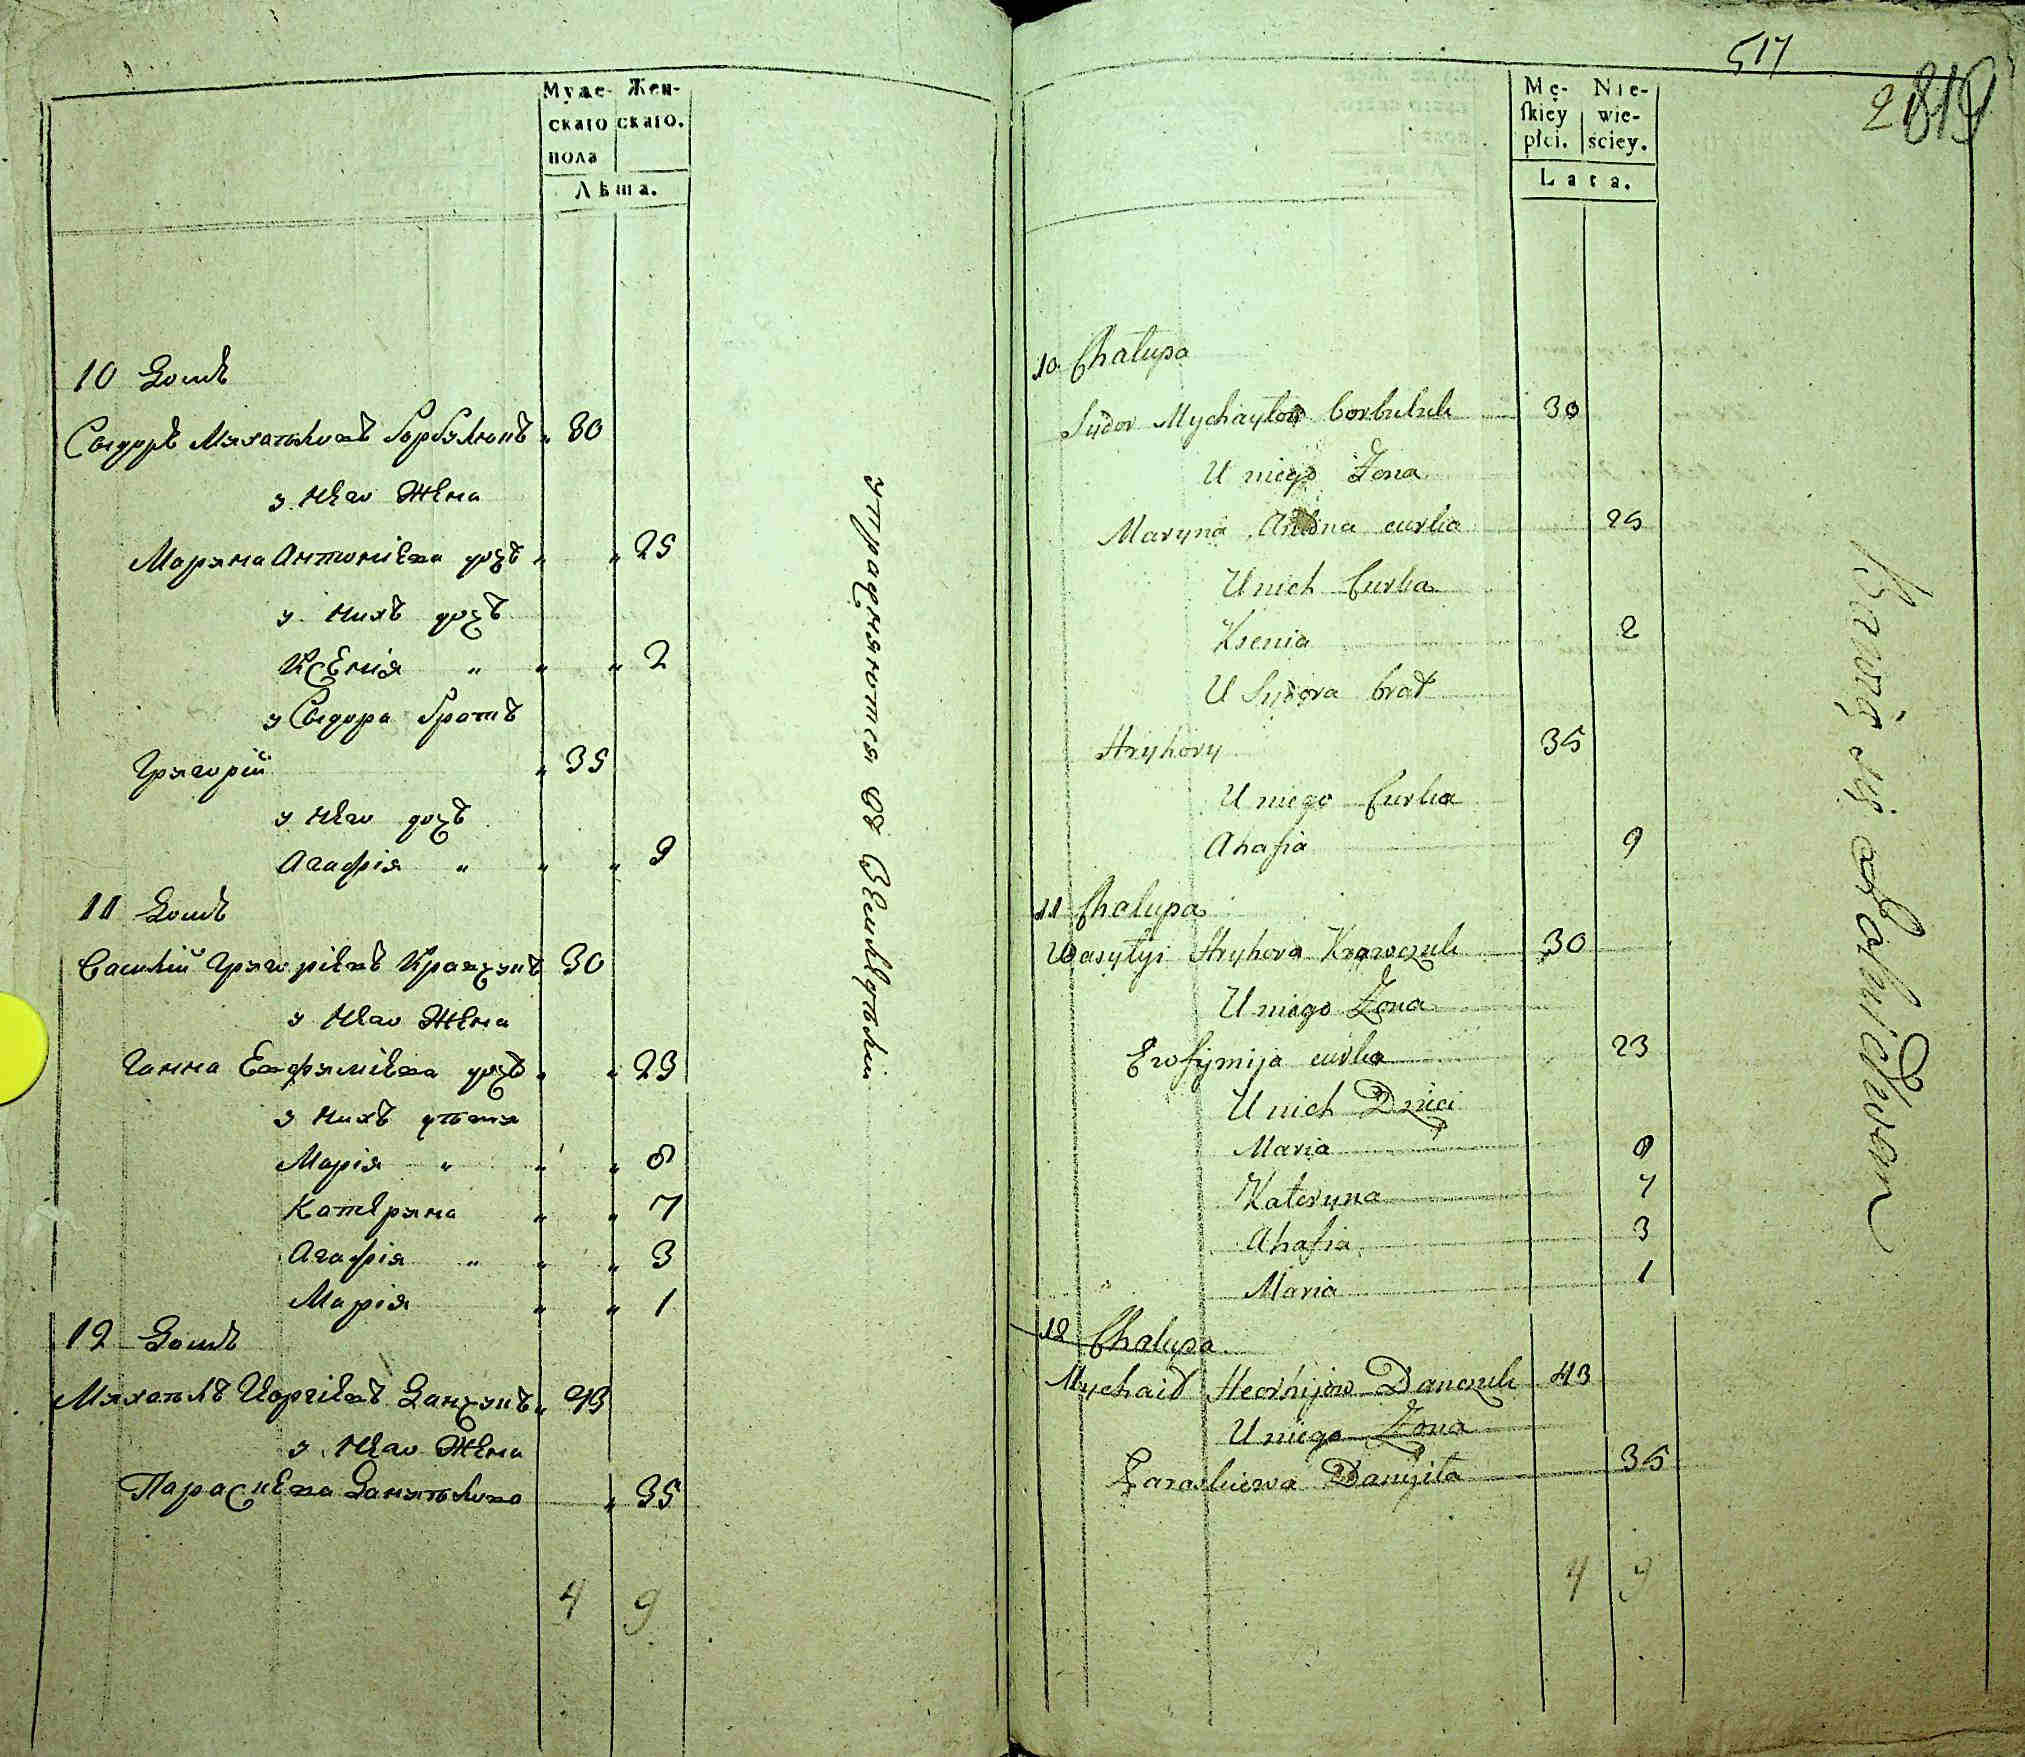 Муже- Жен-
скаго скаго.
пола
Лѣта.
10 Домъ
Сыдоръ Михайловъ Горбулюкъ „ 30
у него Жена
Марина Антоніева дочь „ „ 25
у нихъ дочь
Ксенія „ „ „ 2
у Сыдора братъ
Григорій „ 35
у него дочь
Агафія „ „ „ 9
11 Домъ
Василій Григоріевъ Кравчукъ 30
у него Жена
Ганна Евфиміева дочь „ „ 23
у нихъ дѣти
Марія „ „ „ 8
Катерина „ „ 7
Агафія „ „ „ 3
Марія „ „ 1
12 Домъ
Михайлъ Иоргіевъ Данчукъ „ 43
у него Жена
Параскева Данийлова „ 35
4 9
упражняются въ Земледѣліи
517
2819
Mę- Nie-
skiey wie-
płci. ściey.
Lata.
10 Chałupa
Sydor Mychayłow Gorbuluk 30
U niego Żona
Maryna Antona curka 25
U nich Curka
Ksenia 2
U Sydora brat
Hryhory 35
U niego Curka
Ahafia 9
11 Chalupa
Wasylyi Hryhora Krawczuk 30
U niego Żona
Ewfymija curka 23
U nich Dzieci
Maria 8
Kateryna 7
Ahafia 3
Maria 1
12 Chalupa
Mychaił Heorhijow Danczuk 43
U niego Żona
Paraskiewa Danyiła 35
4 9
Bawią się